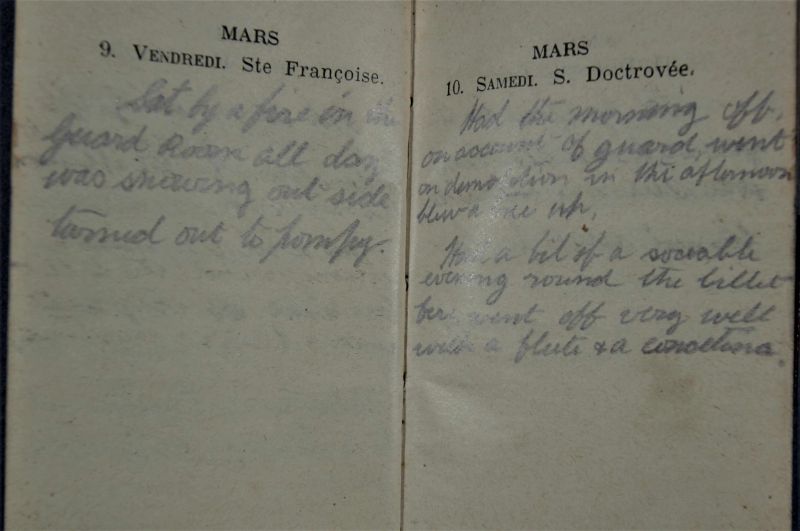 MARS
9. VENDREDI. Ste Françoise.
Sat by a fire in the
Guard Room all day
was snowing out side
turned out to pompy.
MARS
10. SAMEDI. S. Doctrovée.
Had the morning off,
on account of guard, went
on demolition in the afternoon
blew a tree up.
Had a bit of a sociable
evening round the billet
went off very well
with a flute & a concertina.